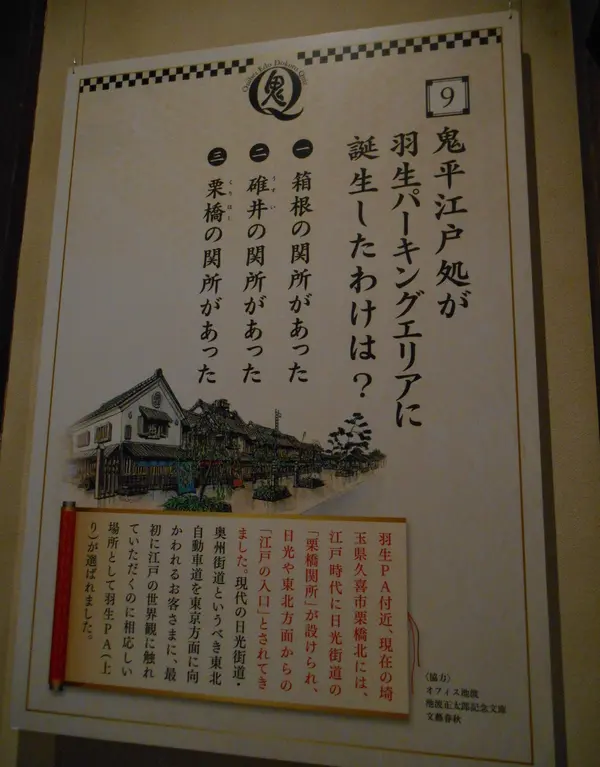 Onihei Edo Dokoro Quiz
鬼
9
鬼平江戸処が
羽生パーキングエリアに
誕生したわけは？
一 箱根の関所があった
二 碓井の関所があった
うすい
三 栗橋の関所があった
くりはし
羽生PA付近、現在の埼
玉県久喜市栗橋北には、
江戸時代に日光街道の
「栗橋関所」が設けられ、
日光や東北方面からの
「江戸の入口」とされてき
ました。現代の日光街道・
奥州街道というべき東北
自動車道を東京方面に向
かわれるお客さまに、最
初に江戸の世界観に触れ
ていただくのに相応しい
場所として羽生PA（上
り）が選ばれました。
〈協力〉
オフィス池波
池波正太郎記念文庫
文藝春秋